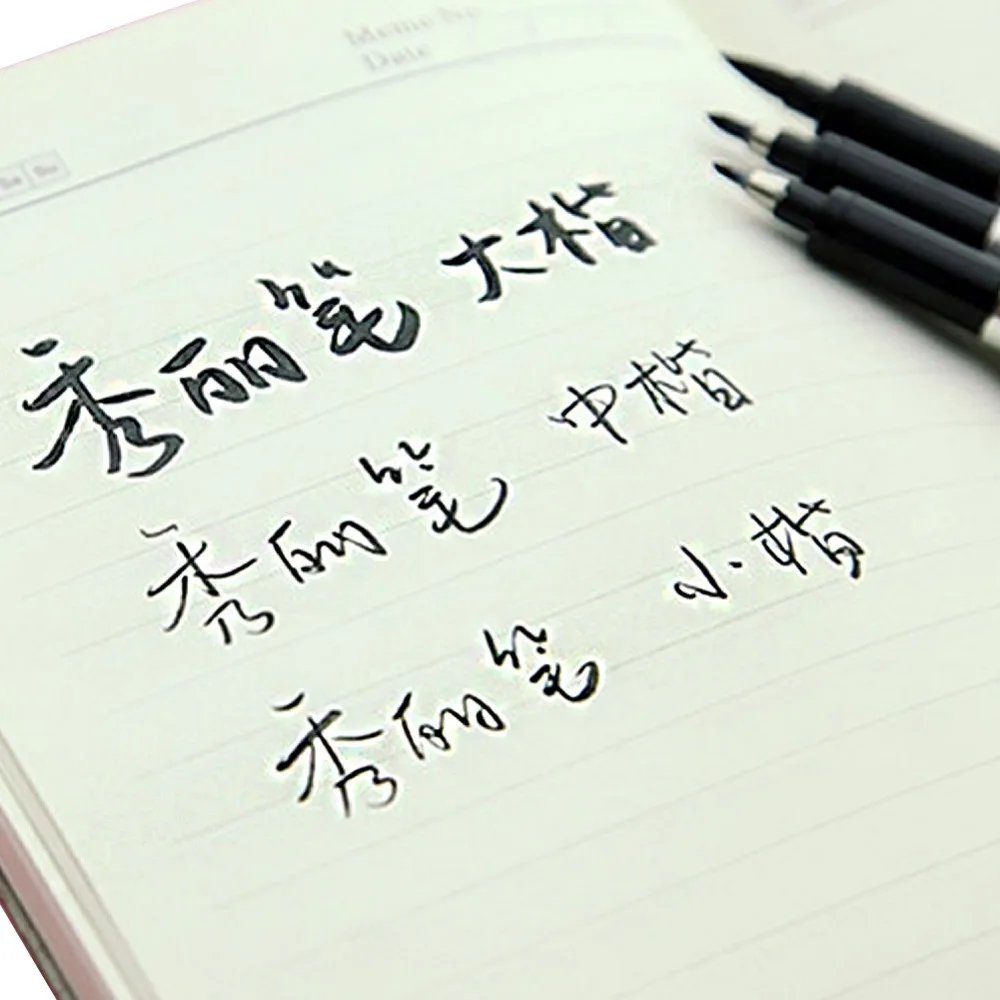 Memo No.
Date
秀丽笔 大楷
秀丽笔 中楷
秀丽笔 小楷